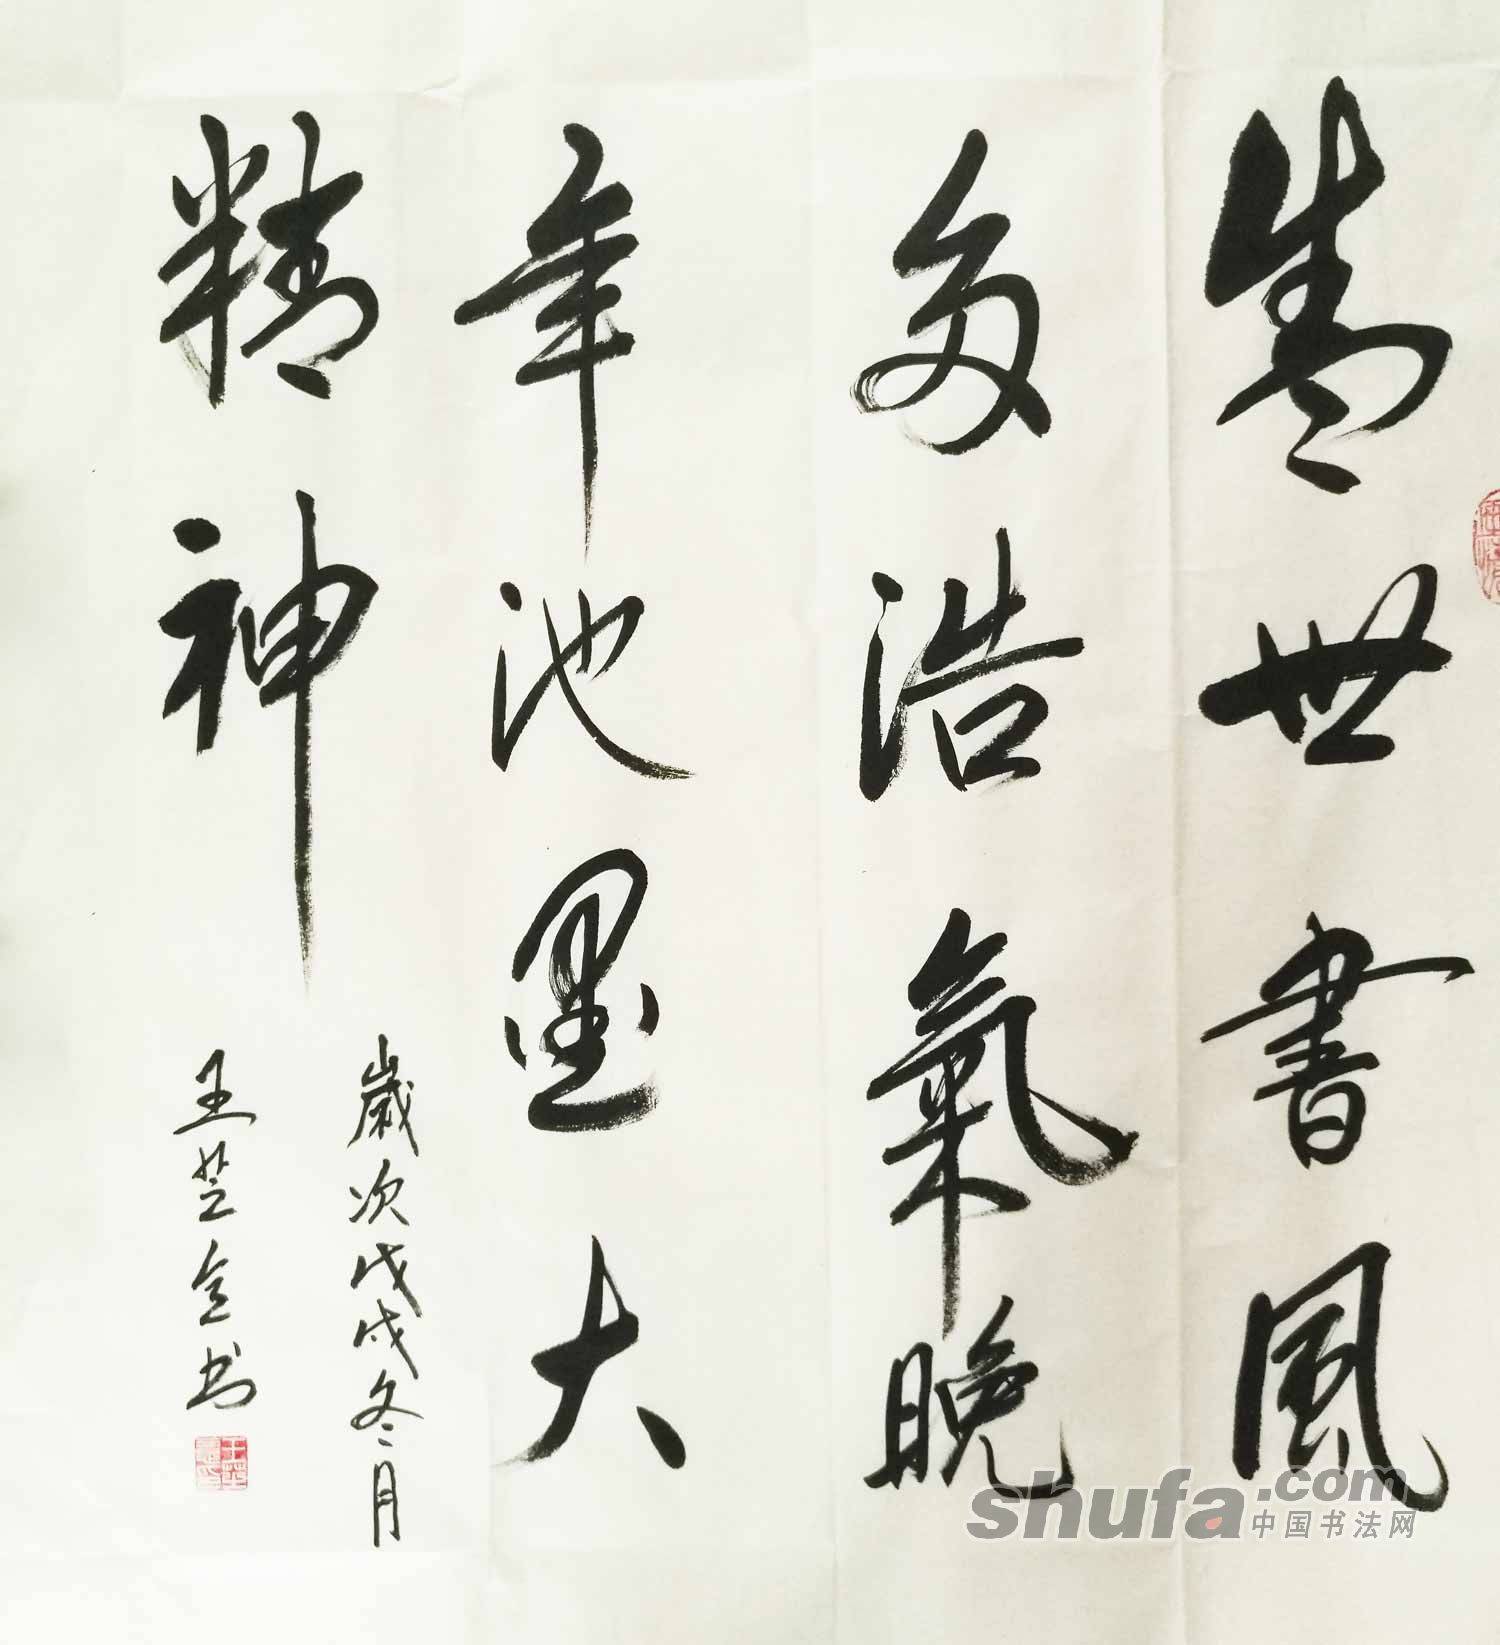 盛世書風
多浩氣晚
年池墨大
精神
歲次戊戌冬月
王芝书
shufa.com
中国书法网